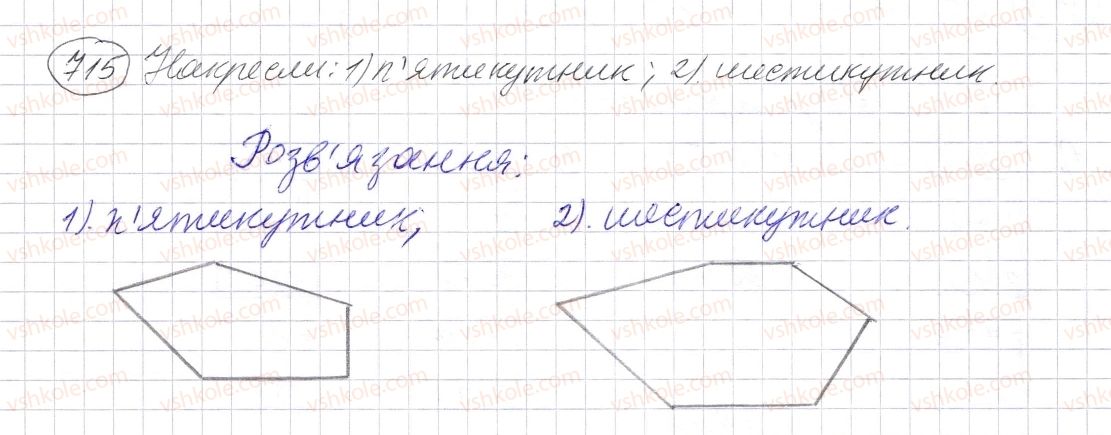 715 Накресли: 1) п'ятикутник; 2). шестикутник.
Розв'язання:
1). п'ятикутник; 2). шестикутник.